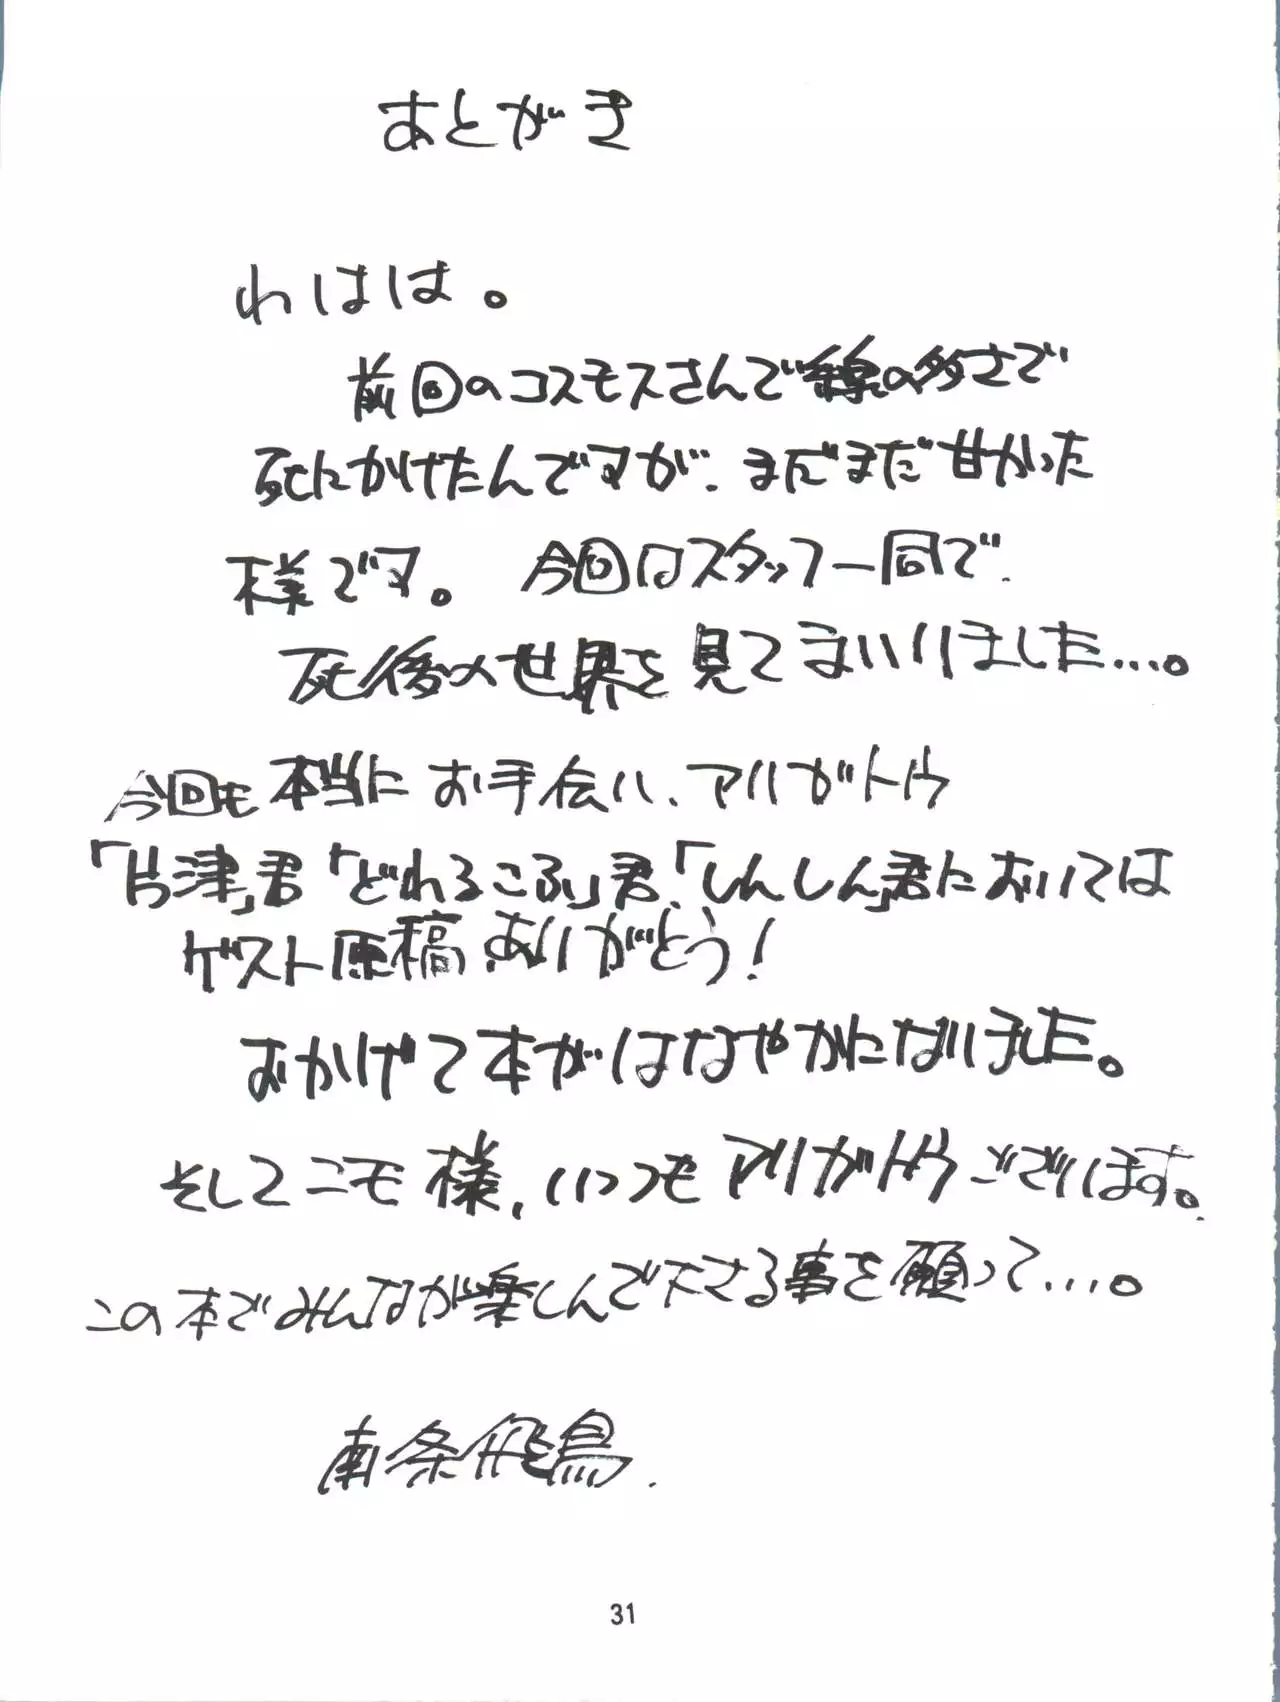 あとがき
わはは。
前回のコスモスさんで線の多さで
死にかけたんですが、まだまだ甘かった
様です。今回はスタッフ一同で、
死後の世界を見てまいりました…。
今回も本当にお手伝い、アリガトウ
「片津」君「どれろこふ」君、「しんしん」君においては
ゲスト原稿ありがとう!
おかげで本がはなやかになりました。
そしてニモ様、いつもアリガトウございます。
この本でみんなが楽しんで下さる事を願って…。
南条飛鳥.
31